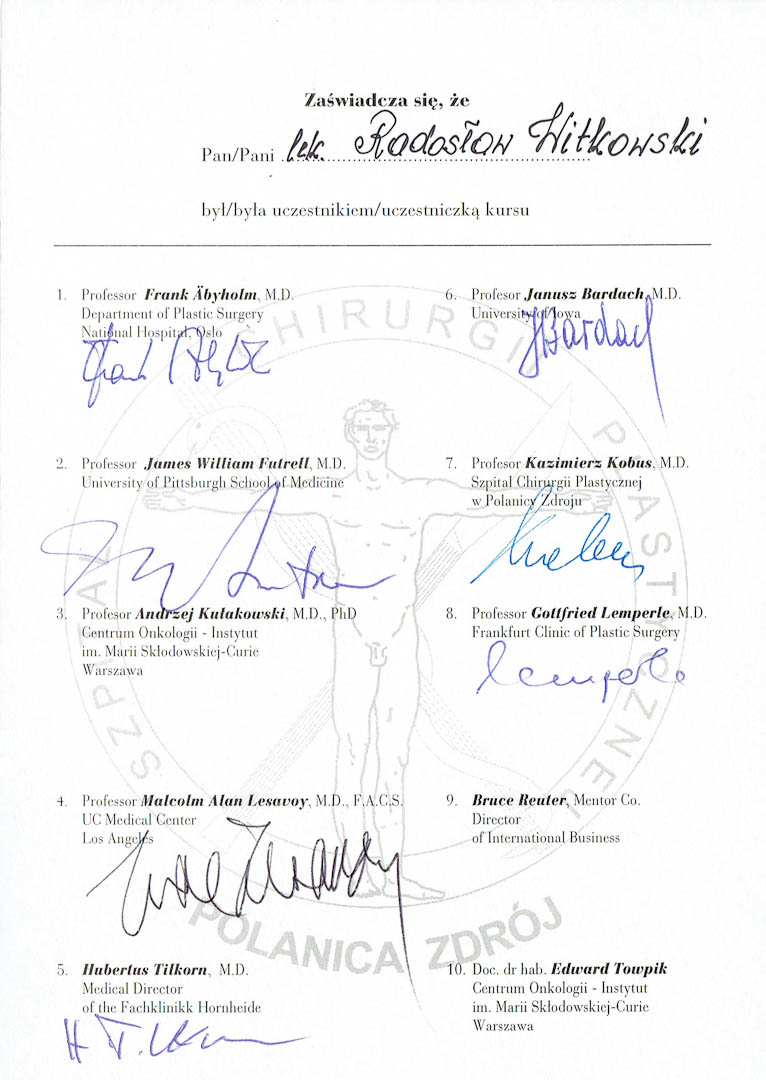 Zaświadcza się, że
Pan/Pani lek. Radosław Witkowski
był/była uczestnikiem/uczestniczką kursu
1. Professor Frank Äbyholm, M.D.
Department of Plastic Surgery
National Hospital, Oslo
2. Professor James William Futrell, M.D.
University of Pittsburgh School of Medicine
3. Profesor Andrzej Kułakowski, M.D., PhD
Centrum Onkologii - Instytut
im. Marii Skłodowskiej-Curie
Warszawa
4. Professor Malcolm Alan Lesavoy, M.D., F.A.C.S.
UC Medical Center
Los Angeles
5. Hubertus Tilkorn, M.D.
Medical Director
of the Fachklinikk Hornheide
H T.lkorn
6. Profesor Janusz Bardach, M.D.
University of Iowa
JBardach
7. Profesor Kazimierz Kobus, M.D.
Szpital Chirurgii Plastycznej
w Polanicy Zdroju
8. Professor Gottfried Lemperle, M.D.
Frankfurt Clinic of Plastic Surgery
Lemperle
9. Bruce Reuter, Mentor Co.
Director
of International Business
10. Doc. dr hab. Edward Towpik
Centrum Onkologii - Instytut
im. Marii Skłodowskiej-Curie
Warszawa
SZPITAL CHIRURGII PLASTYCZNEJ
POLANICA ZDRÓJ